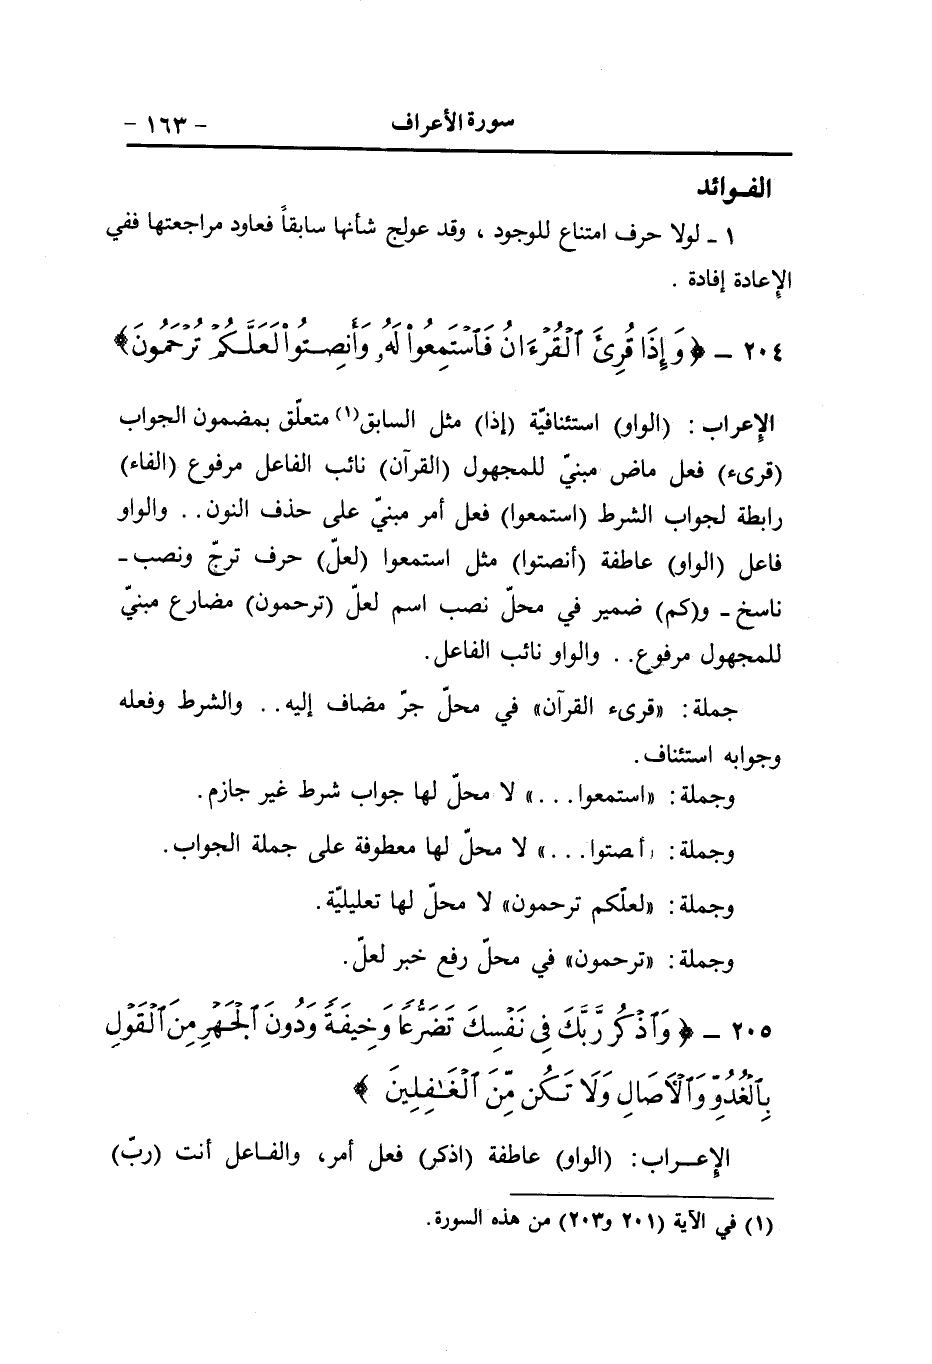 سورة الأعراف - ١٦٣ -
الفـوائد
١ ـ لولا حرف امتناع للوجود ، وقد عولج شأنها سابقاً فعاود مراجعتها ففي
الإعادة إفادة .
٢٠٤ ـ ﴿ وَإِذَا قُرِئَ ٱلْقُرْءَانُ فَٱسْتَمِعُوا۟ لَهُۥ وَأَنصِتُوا۟ لَعَلَّكُمْ تُرْحَمُونَ ﴾
الإعراب : (الواو) استئنافيّة (إذا) مثل السابق(١) متعلّق بمضمون الجواب
(قرىء) فعل ماض مبنيّ للمجهول (القرآن) نائب الفاعل مرفوع (الفاء)
رابطة لجواب الشرط (استمعوا) فعل أمر مبنيّ على حذف النون.. والواو
فاعل (الواو) عاطفة (أنصتوا) مثل استمعوا (لعلّ) حرف ترجّ ونصب ـ
ناسخ ـ و(كم) ضمير في محلّ نصب اسم لعلّ (ترحمون) مضارع مبنيّ
للمجهول مرفوع.. والواو نائب الفاعل.
جملة: «قرىء القرآن» في محلّ جرّ مضاف إليه.. والشرط وفعله
وجوابه استئناف.
وجملة: «استمعوا...» لا محلّ لها جواب شرط غير جازم.
وجملة: أنصتوا...» لا محلّ لها معطوفة على جملة الجواب.
وجملة: «لعلّكم ترحمون» لا محلّ لها تعليليّة.
وجملة: «ترحمون» في محلّ رفع خبر لعلّ.
٢٠٥ ـ ﴿ وَٱذْكُر رَّبَّكَ فِى نَفْسِكَ تَضَرُّعًا وَخِيفَةً وَدُونَ ٱلْجَهْرِ مِنَ ٱلْقَوْلِ
بِٱلْغُدُوِّ وَٱلْءَاصَالِ وَلَا تَكُن مِّنَ ٱلْغَـٰفِلِينَ ﴾
الإعــراب: (الواو) عاطفة (اذكر) فعل أمر، والفـاعل أنت (ربّ)
(١) في الآية (٢٠١ و٢٠٣) من هذه السورة.